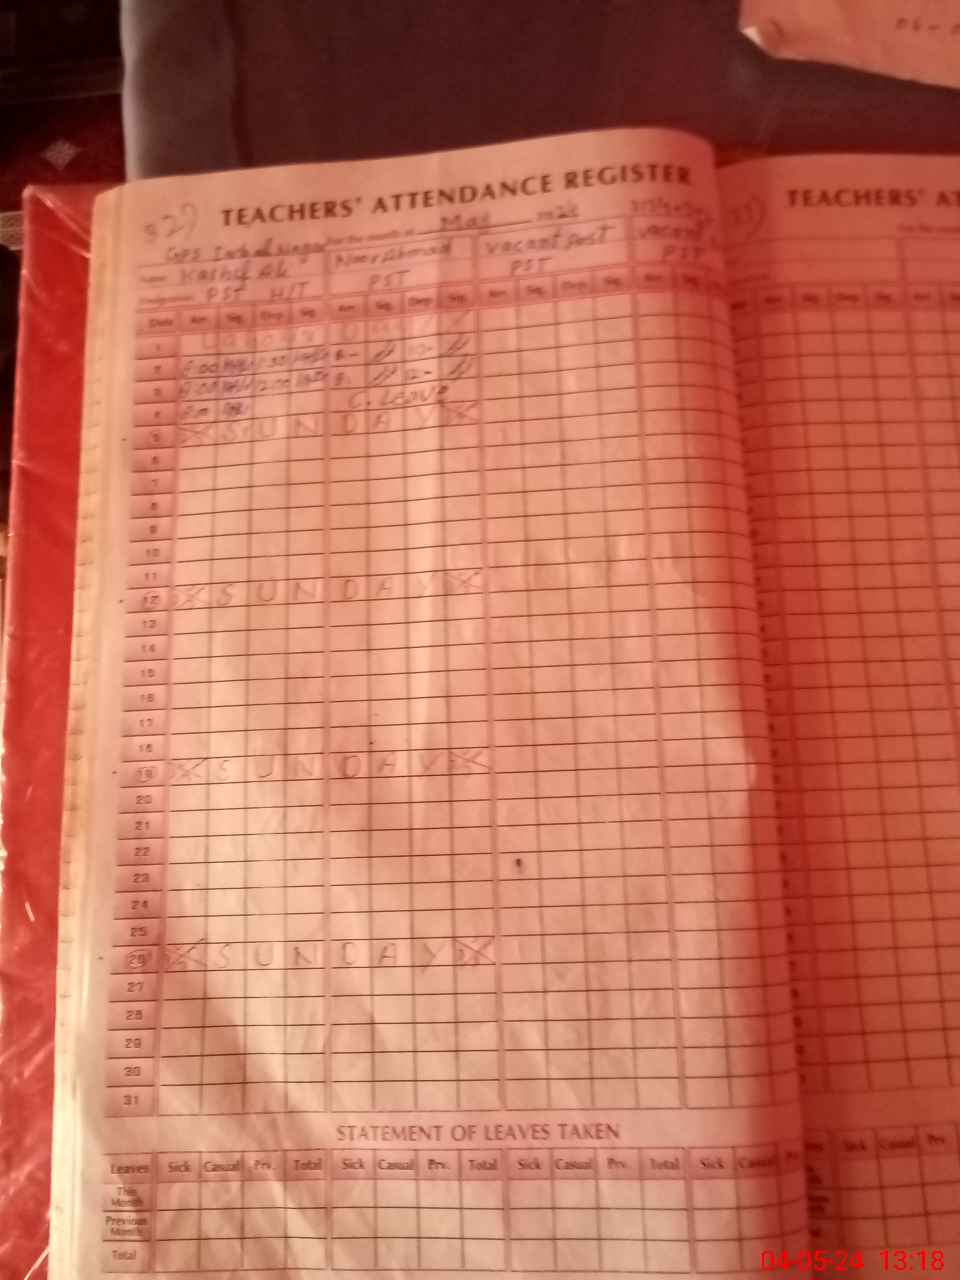 TEACHERS' ATTENDANCE REGISTER
TEACHERS' AT
For the month of May 2024
GPS
Name Kashif Ali Noor Ahmad Vacant Post Vacant
Designation PST H/T PST PST PST
Date Arr. Sig. Dep. Sig. Arr. Sig. Dep. Sig. Arr. Sig. Dep. Sig. Arr. Sig.
Arr. Sig. Dep. Sig. Arr.
1
2 8:00 8-
3 8:00 2:00 8- 12-
4 8:00 C. Leave
5 SUNDAY
6
7
8
9
10
11
12 SUNDAY
13
14
15
16
17
18
19 SUNDAY
20
21
22
23
24
25
26 SUNDAY
27
28
29
30
31
STATEMENT OF LEAVES TAKEN
Leaves Sick Casual Prv. Total Sick Casual Prv. Total Sick Casual Prv. Total Sick Casual
Sick Casual Prv.
This Month
Previous Month
Total
04-05-24 13:18